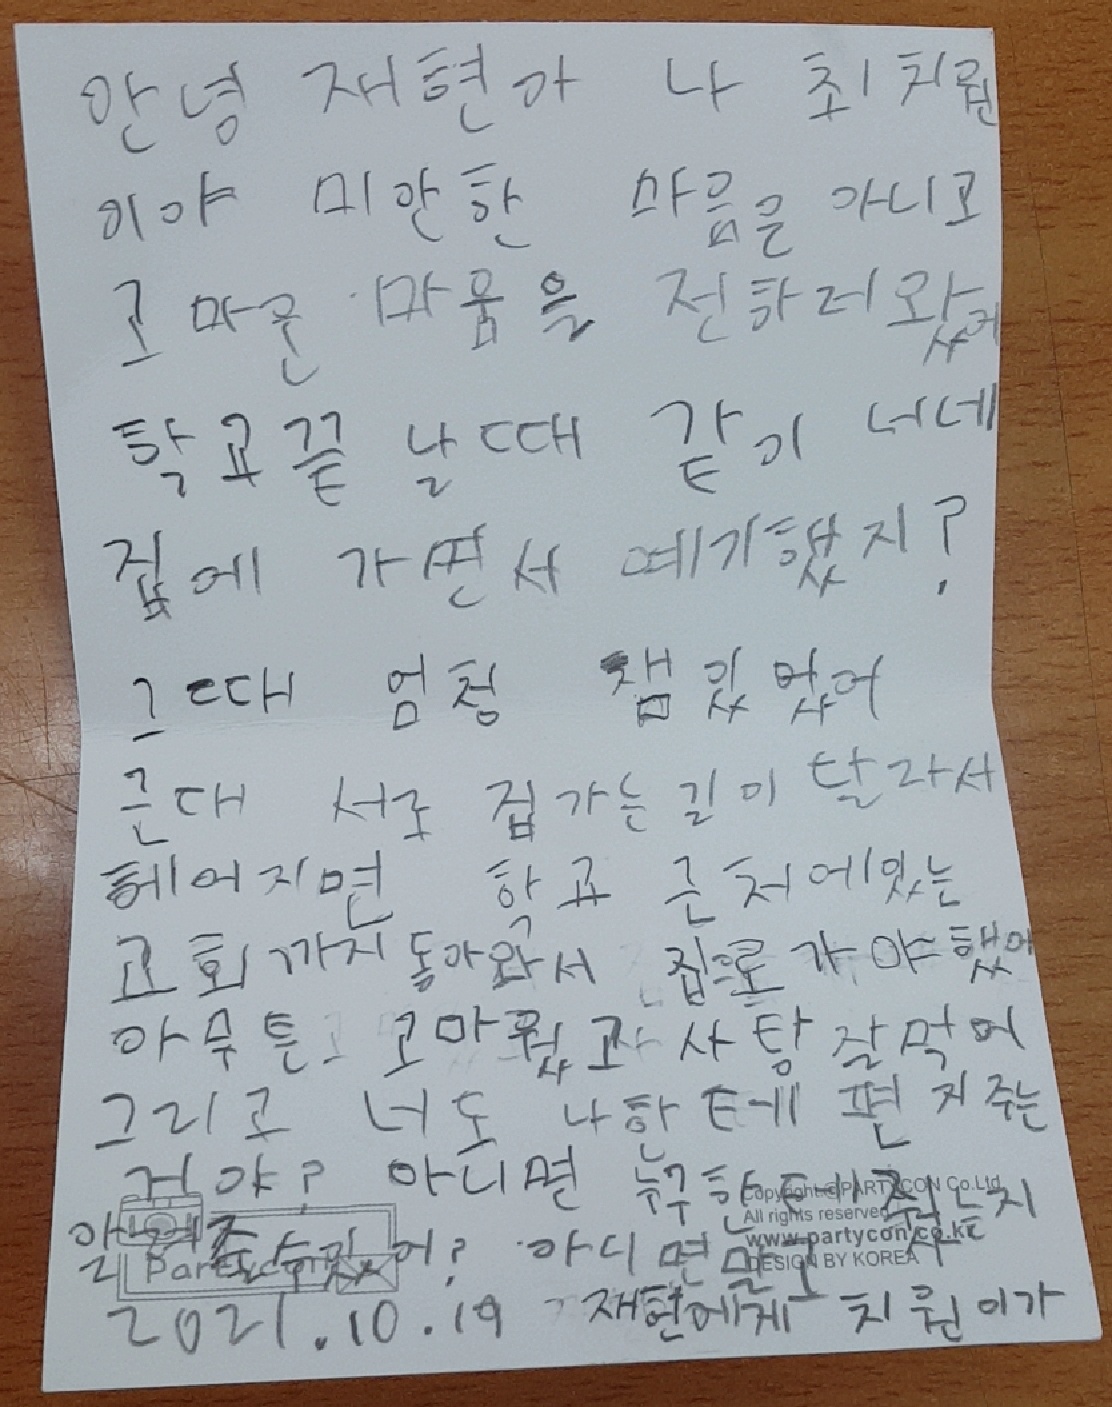 안녕 재현아 나 최치원
이야 미안한 마음은 아니고
고마운 마음을 전하러왔어
학교끝 날때 같이 너네
집에 가면서 예기했지?
그때 엄청 잼있었어
근대 서로 집가는길이 달라서
헤어지면 학교 근처에있는
교회까지 돌아와서 집으로 가야했어
아무튼 고마웠고 사탕 잘먹어
그리고 너도 나한테 편지주는
거야? 아니면 누구한테 줬는지
알려줄수있어? 아니면말고
Copyright@PARTYCON Co.Ltd
All rights reserved
www.partycon.co.kr
DESIGN BY KOREA
Partycon
2021.10.19 재현에게 치원이가